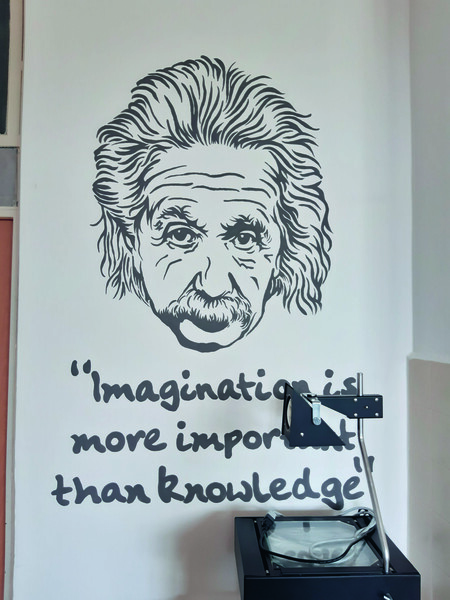 "Imagination is
more important
than knowledge"